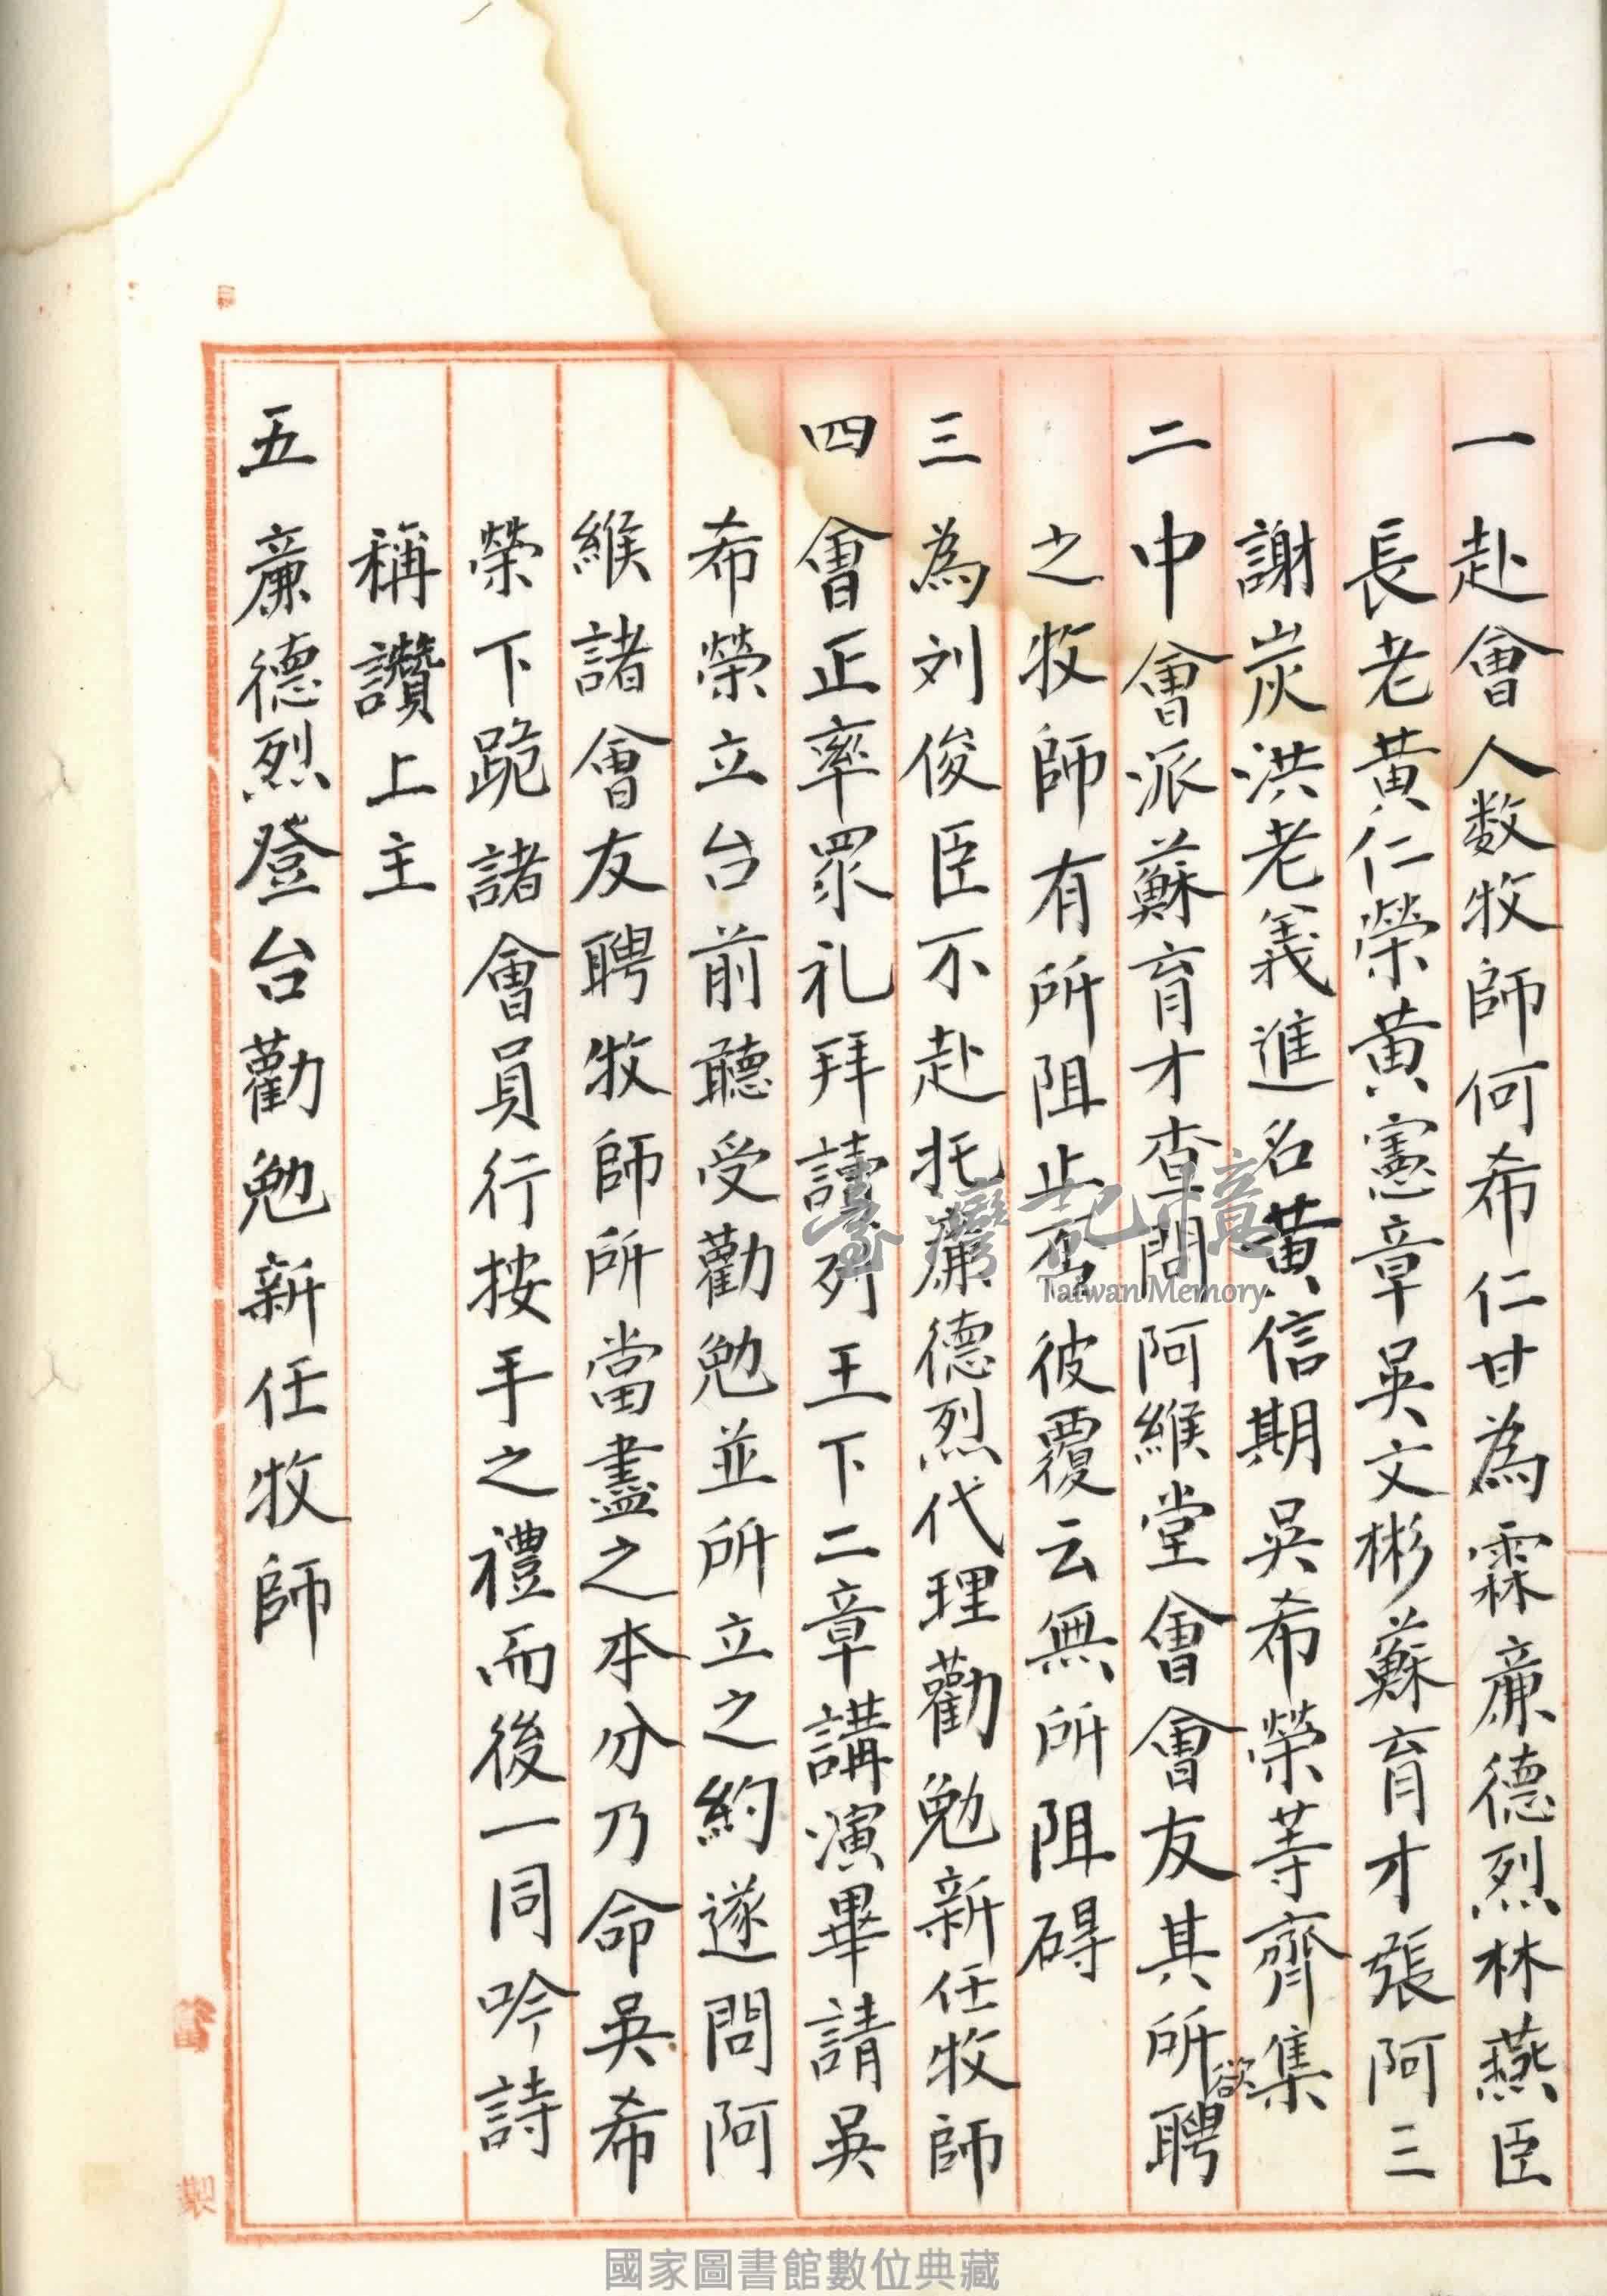 一 赴會人数牧師何希仁甘為霖廉德烈林燕臣
長老黃仁榮黃憲章吳文彬蘇育才張阿三
謝炭洪老義進名黃信期吳希榮等齊集
二 中會派蘇育才查問阿緱堂會會友其所欲聘
之牧師有所阻止否彼覆云無所阻碍
三 為刘俊臣不赴托廉德烈代理勸勉新任牧師
四 會正率眾礼拜讀列王下二章講演畢請吳
希榮立台前聽受勸勉並所立之約遂問阿
緱諸會友聘牧師所當盡之本分乃命吳希
榮下跪諸會員行按手之禮而後一同吟詩
稱讚上主
五 廉德烈登台勸勉新任牧師
臺灣記憶
Taiwan Memory
國家圖書館數位典藏